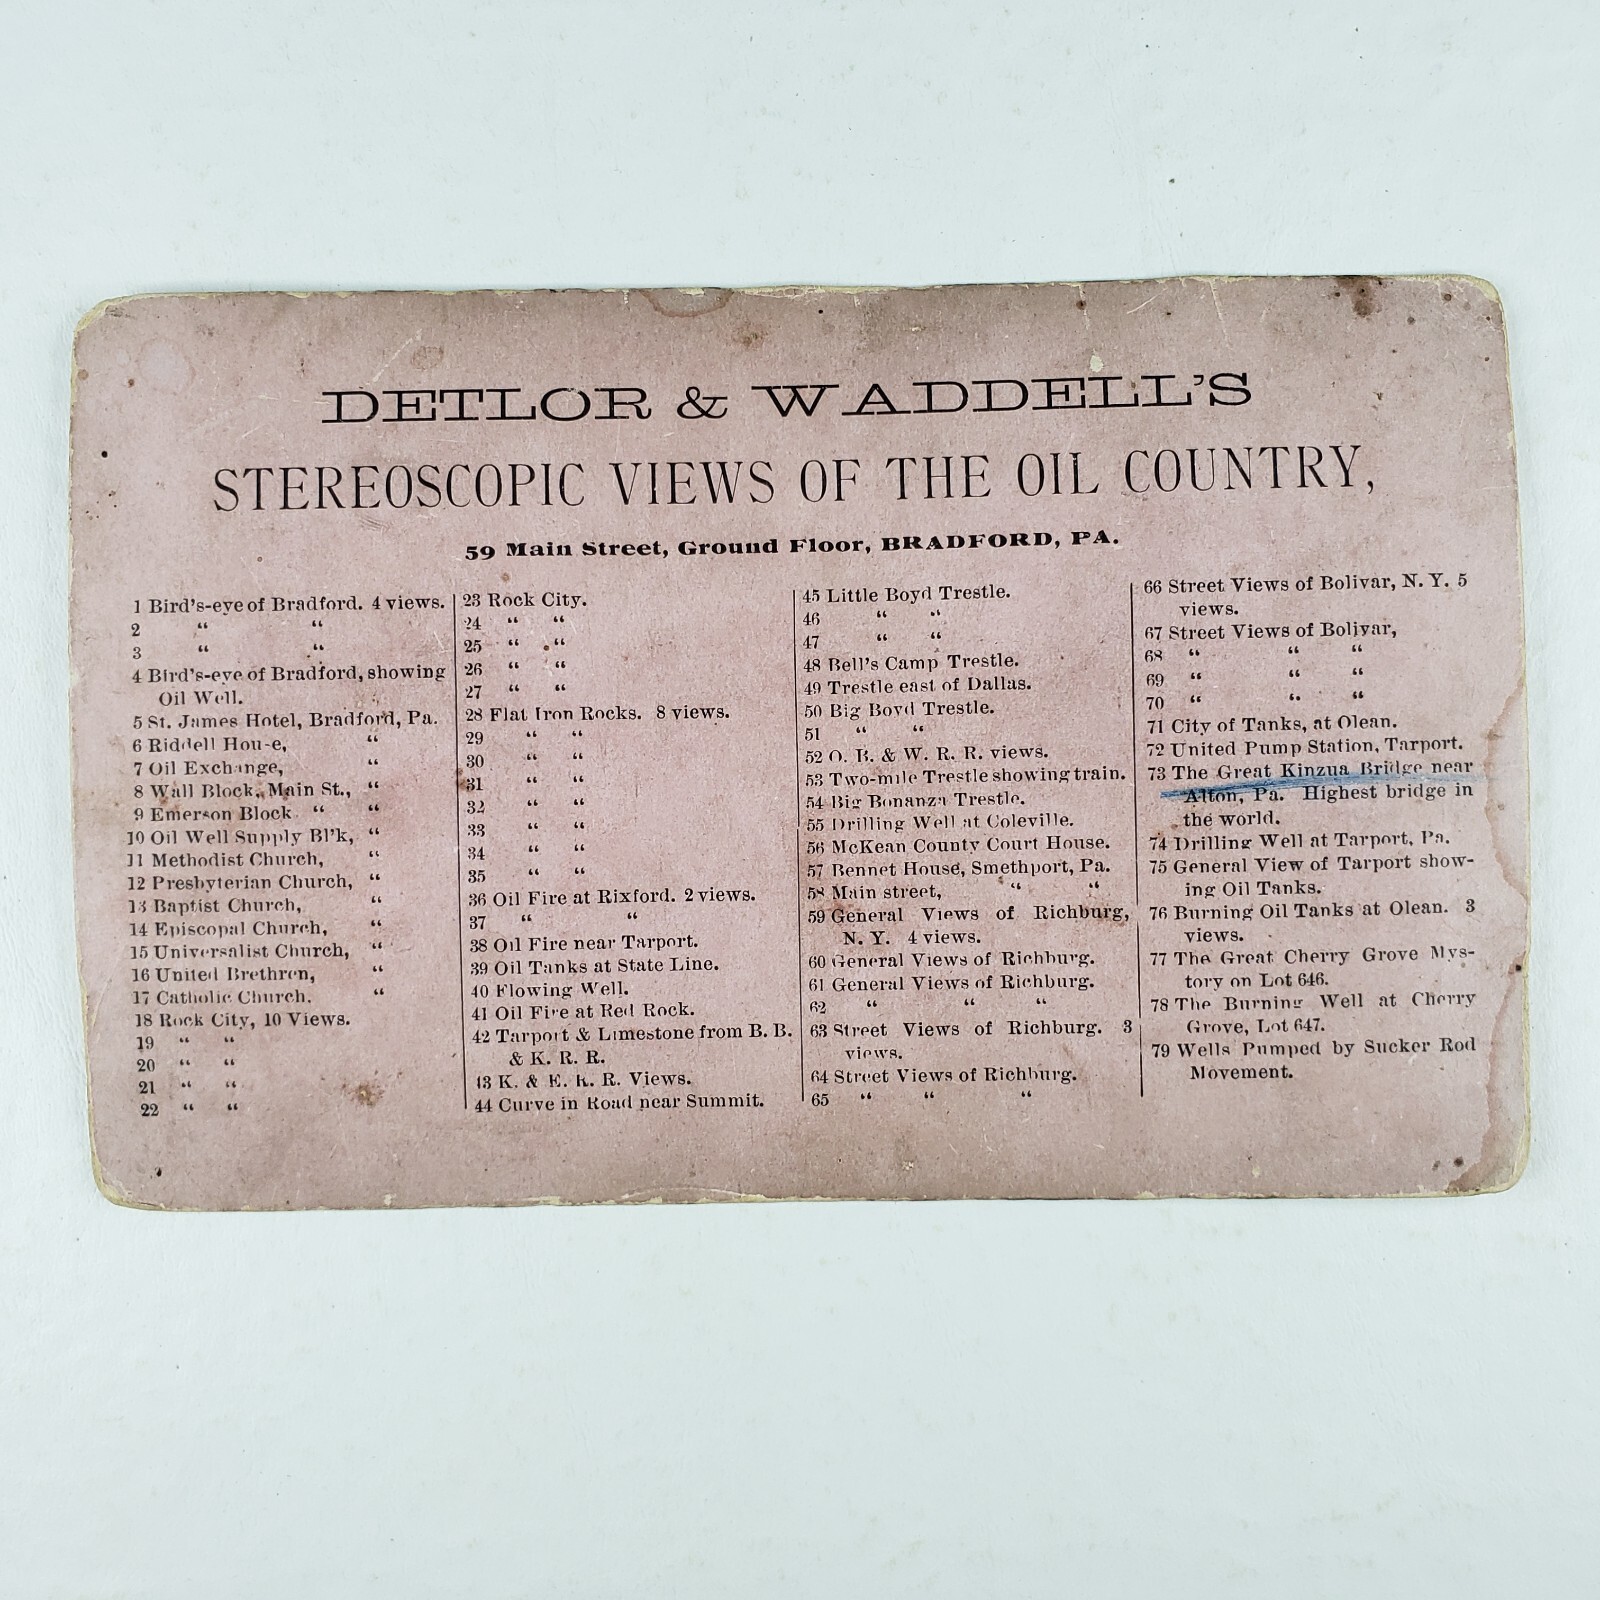 DETLOR & WADDELL'S
STEREOSCOPIC VIEWS OF THE OIL COUNTRY,
59 Main Street, Ground Floor, BRADFORD, PA.
1 Bird's-eye of Bradford. 4 views.
2 “ “
3 “ “
4 Bird's-eye of Bradford, showing
Oil Well.
5 St. James Hotel, Bradford, Pa.
6 Riddell Hou-e, “
7 Oil Exchange, “
8 Wall Block, Main St., “
9 Emerson Block “ “
10 Oil Well Supply Bl'k, “
11 Methodist Church, “
12 Presbyterian Church, “
13 Baptist Church, “
14 Episcopal Church, “
15 Universalist Church, “
16 United Brethren, “
17 Catholic Church. “
18 Rock City, 10 Views.
19 “ “
20 “ “
21 “ “
22 “ “
23 Rock City.
24 “ “
25 “ “
26 “ “
27 “ “
28 Flat Iron Rocks. 8 views.
29 “ “
30 “ “
31 “ “
32 “ “
33 “ “
34 “ “
35 “ “
36 Oil Fire at Rixford. 2 views.
37 “ “
38 Oil Fire near Tarport.
39 Oil Tanks at State Line.
40 Flowing Well.
41 Oil Fire at Red Rock.
42 Tarport & Limestone from B. B.
& K. R. R.
43 K. & E. R. R. Views.
44 Curve in Road near Summit.
45 Little Boyd Trestle.
46 “ “
47 “ “
48 Bell's Camp Trestle.
49 Trestle east of Dallas.
50 Big Boyd Trestle.
51 “ “
52 O. B. & W. R. R. views.
53 Two-mile Trestle showing train.
54 Big Bonanza Trestle.
55 Drilling Well at Coleville.
56 McKean County Court House.
57 Bennet House, Smethport, Pa.
58 Main street, “ “
59 General Views of Richburg,
N. Y. 4 views.
60 General Views of Richburg.
61 General Views of Richburg.
62 “ “ “
63 Street Views of Richburg. 3
views.
64 Street Views of Richburg.
65 “ “ “
66 Street Views of Bolivar, N. Y. 5
views.
67 Street Views of Bolivar,
68 “ “ “
69 “ “ “
70 “ “ “
71 City of Tanks, at Olean.
72 United Pump Station, Tarport.
73 The Great Kinzua Bridge near
Alton, Pa. Highest bridge in
the world.
74 Drilling Well at Tarport, Pa.
75 General View of Tarport show-
ing Oil Tanks.
76 Burning Oil Tanks at Olean. 3
views.
77 The Great Cherry Grove Mys-
tory on Lot 646.
78 The Burning Well at Cherry
Grove, Lot 647.
79 Wells Pumped by Sucker Rod
Movement.